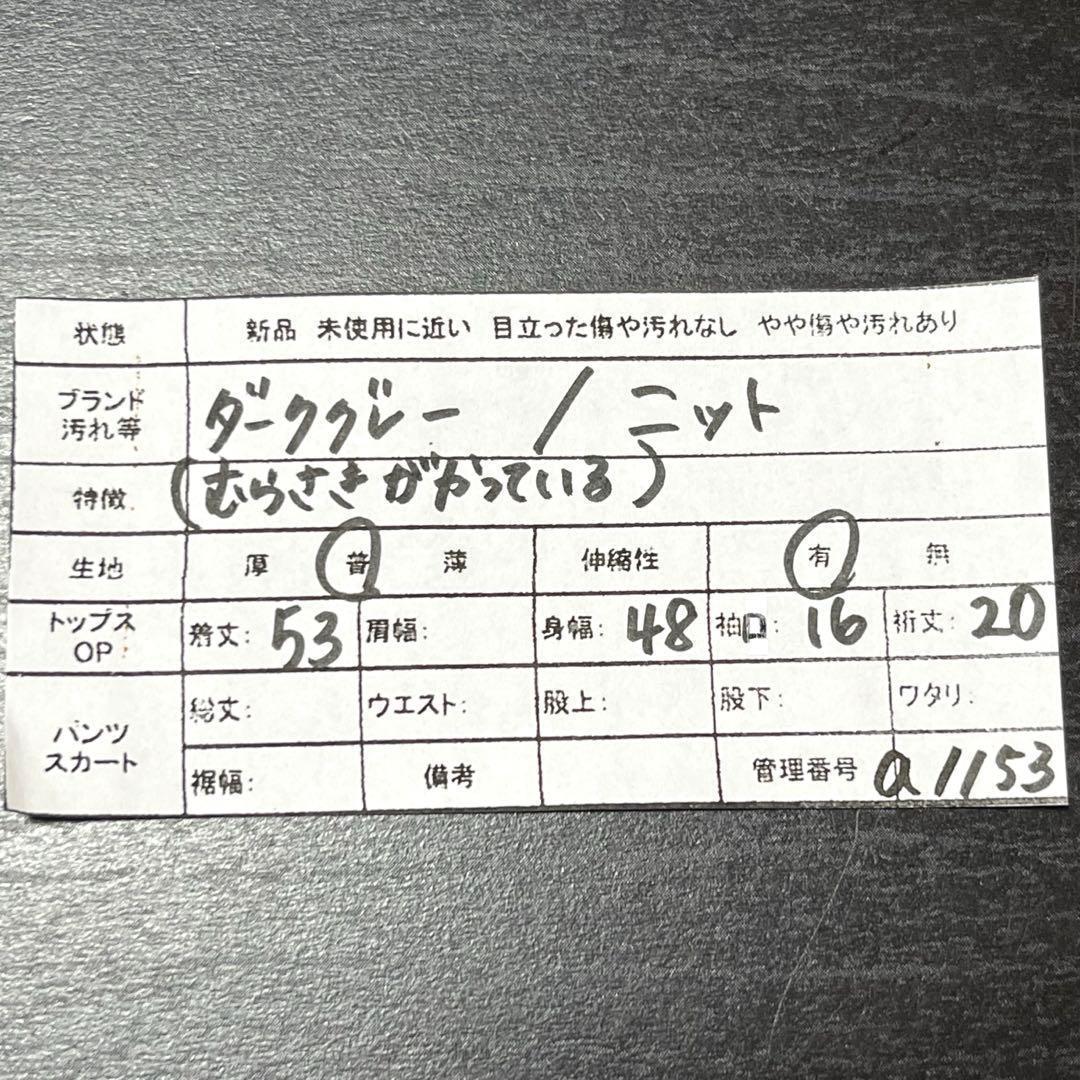 状態 新品 未使用に近い 目立った傷や汚れなし やや傷や汚れあり
ブランド
汚れ等
ダークグレー / ニット
特徴 (むらさきがかっている)
生地 厚 普 薄 伸縮性 有 無
トップス
OP
着丈: 53 肩幅: 身幅: 48 袖口: 16 裄丈: 20
パンツ
スカート
総丈: ウエスト: 股上: 股下: ワタリ:
裾幅: 備考 管理番号 a1153